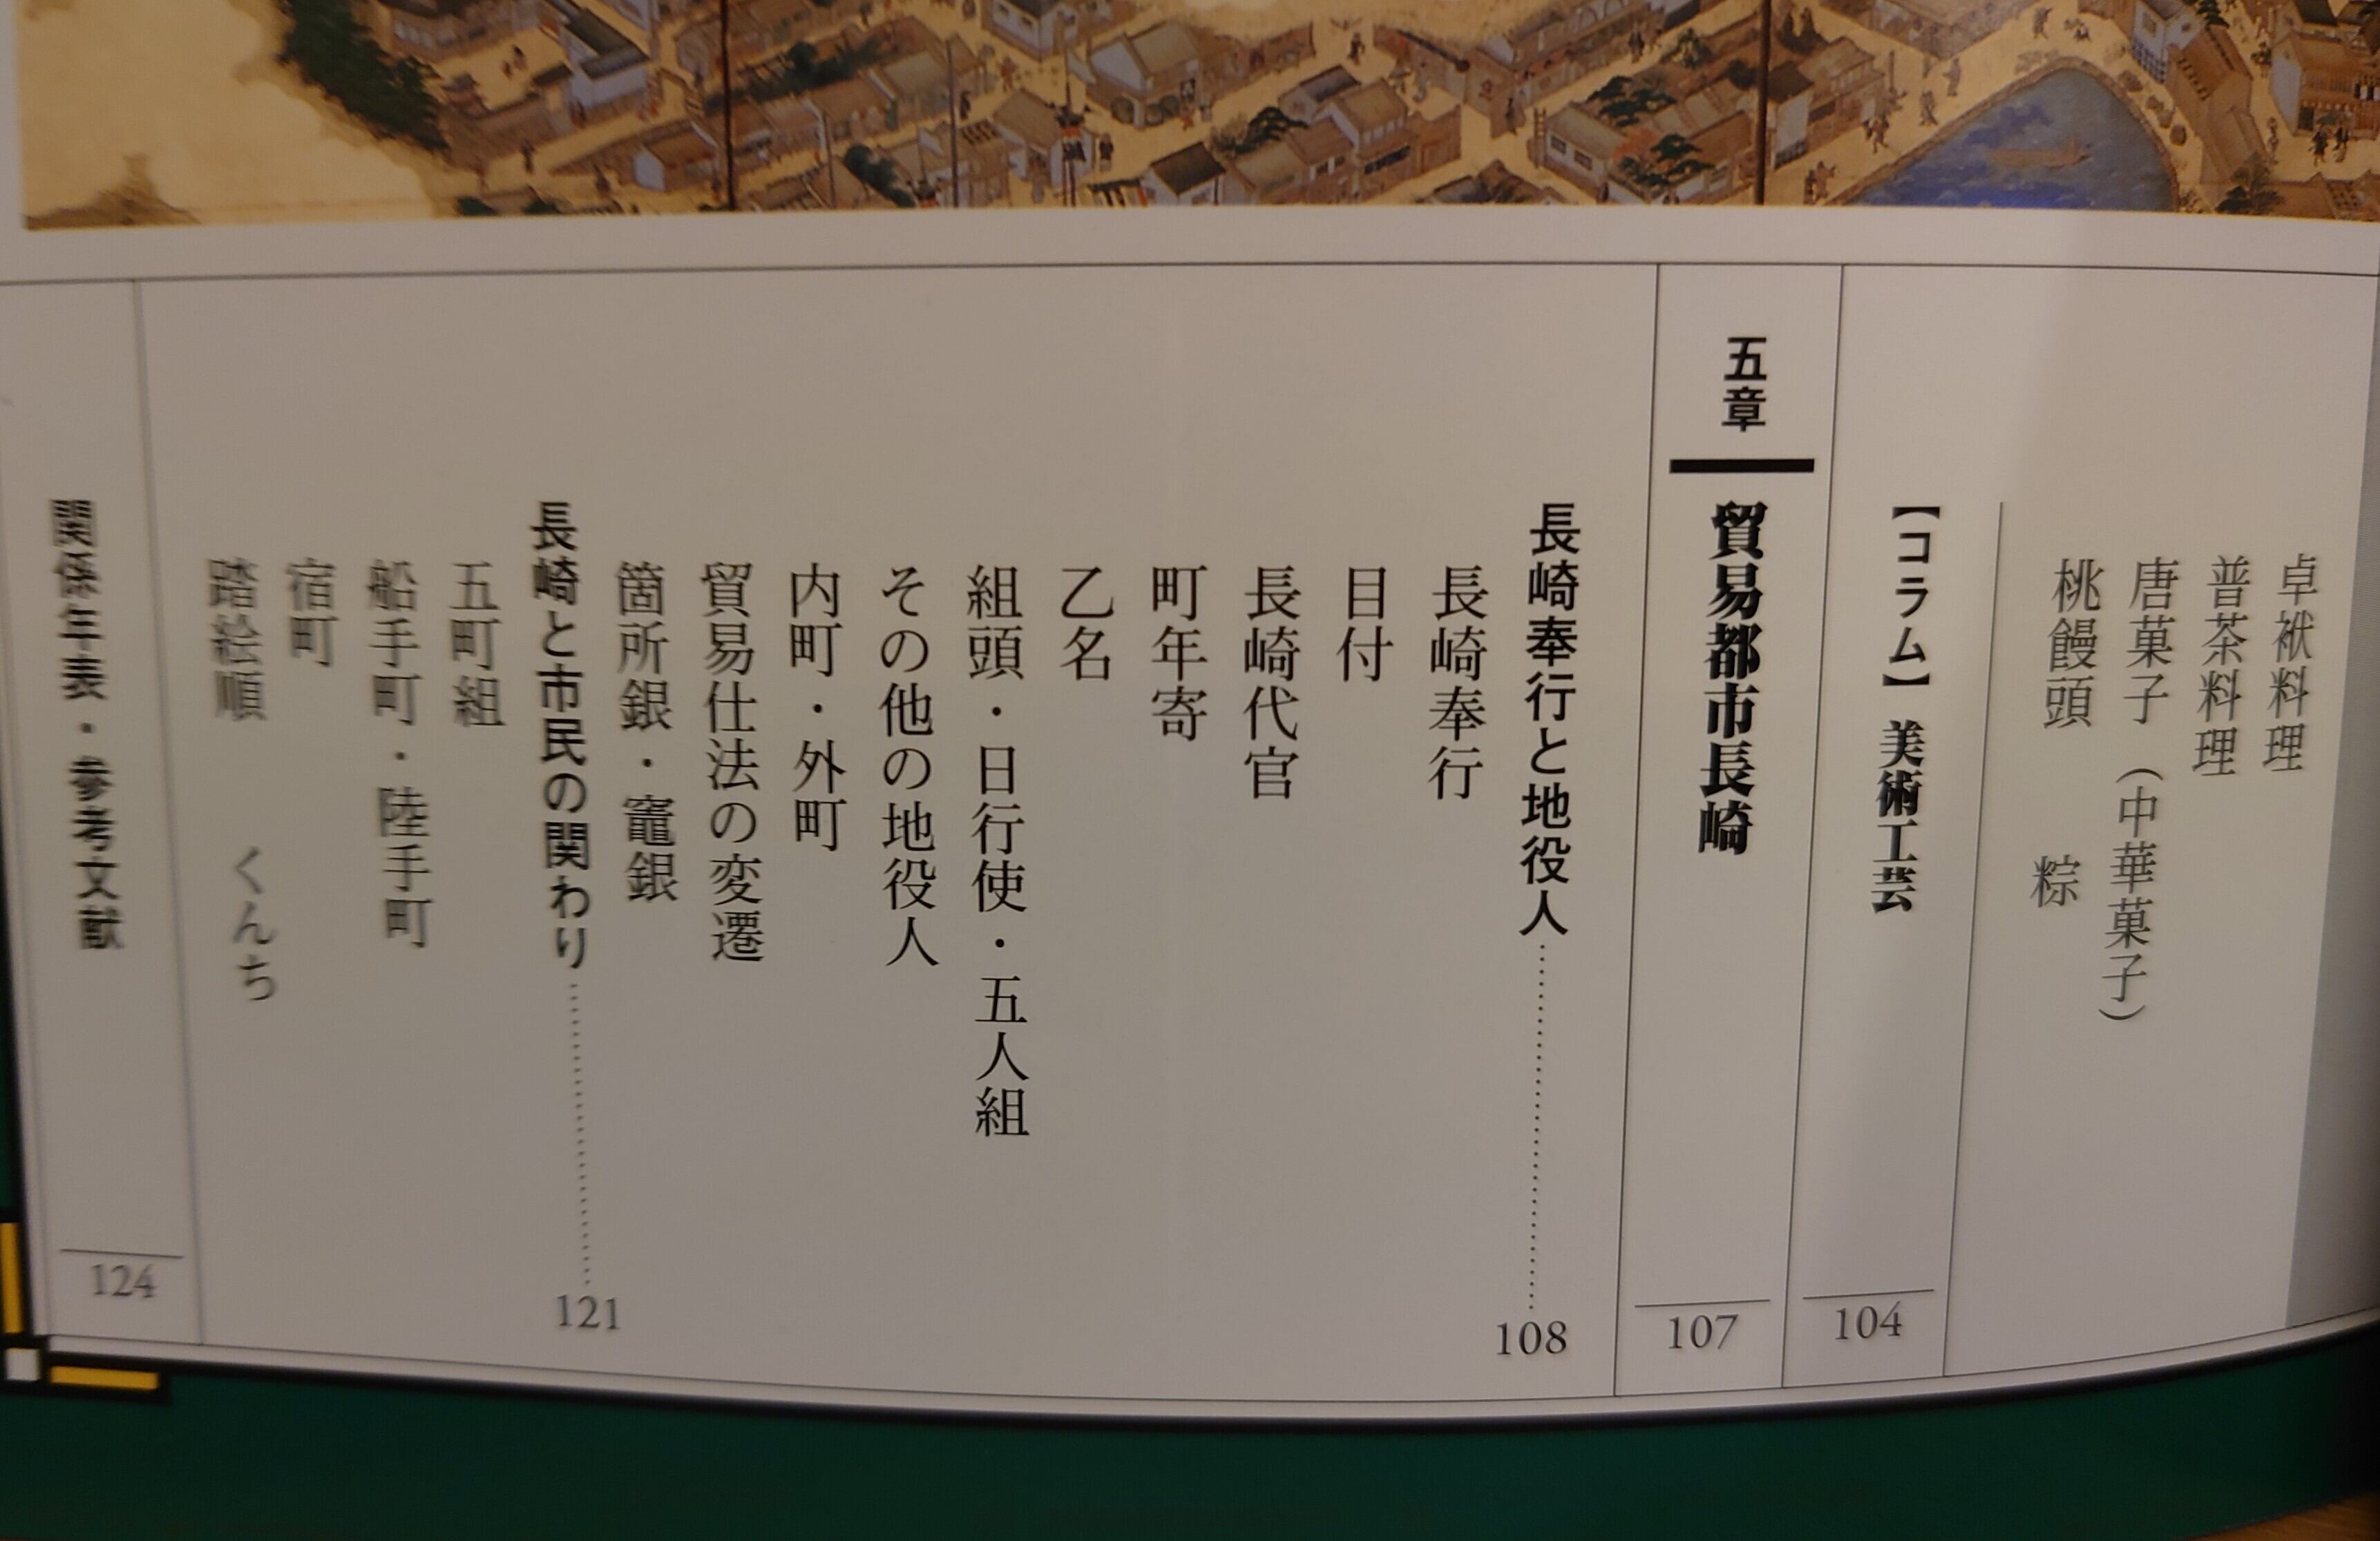 卓袱料理
普茶料理
唐菓子（中華菓子）
桃饅頭　粽
【コラム】美術工芸 104
五章 貿易都市長崎 107
長崎奉行と地役人 108
長崎奉行
目付
長崎代官
町年寄
乙名
組頭・日行使・五人組
その他の地役人
内町・外町
貿易仕法の変遷
箇所銀・竈銀
長崎と市民の関わり 121
五町組
船手町・陸手町
宿町
踏絵順　くんち
関係年表・参考文献 124